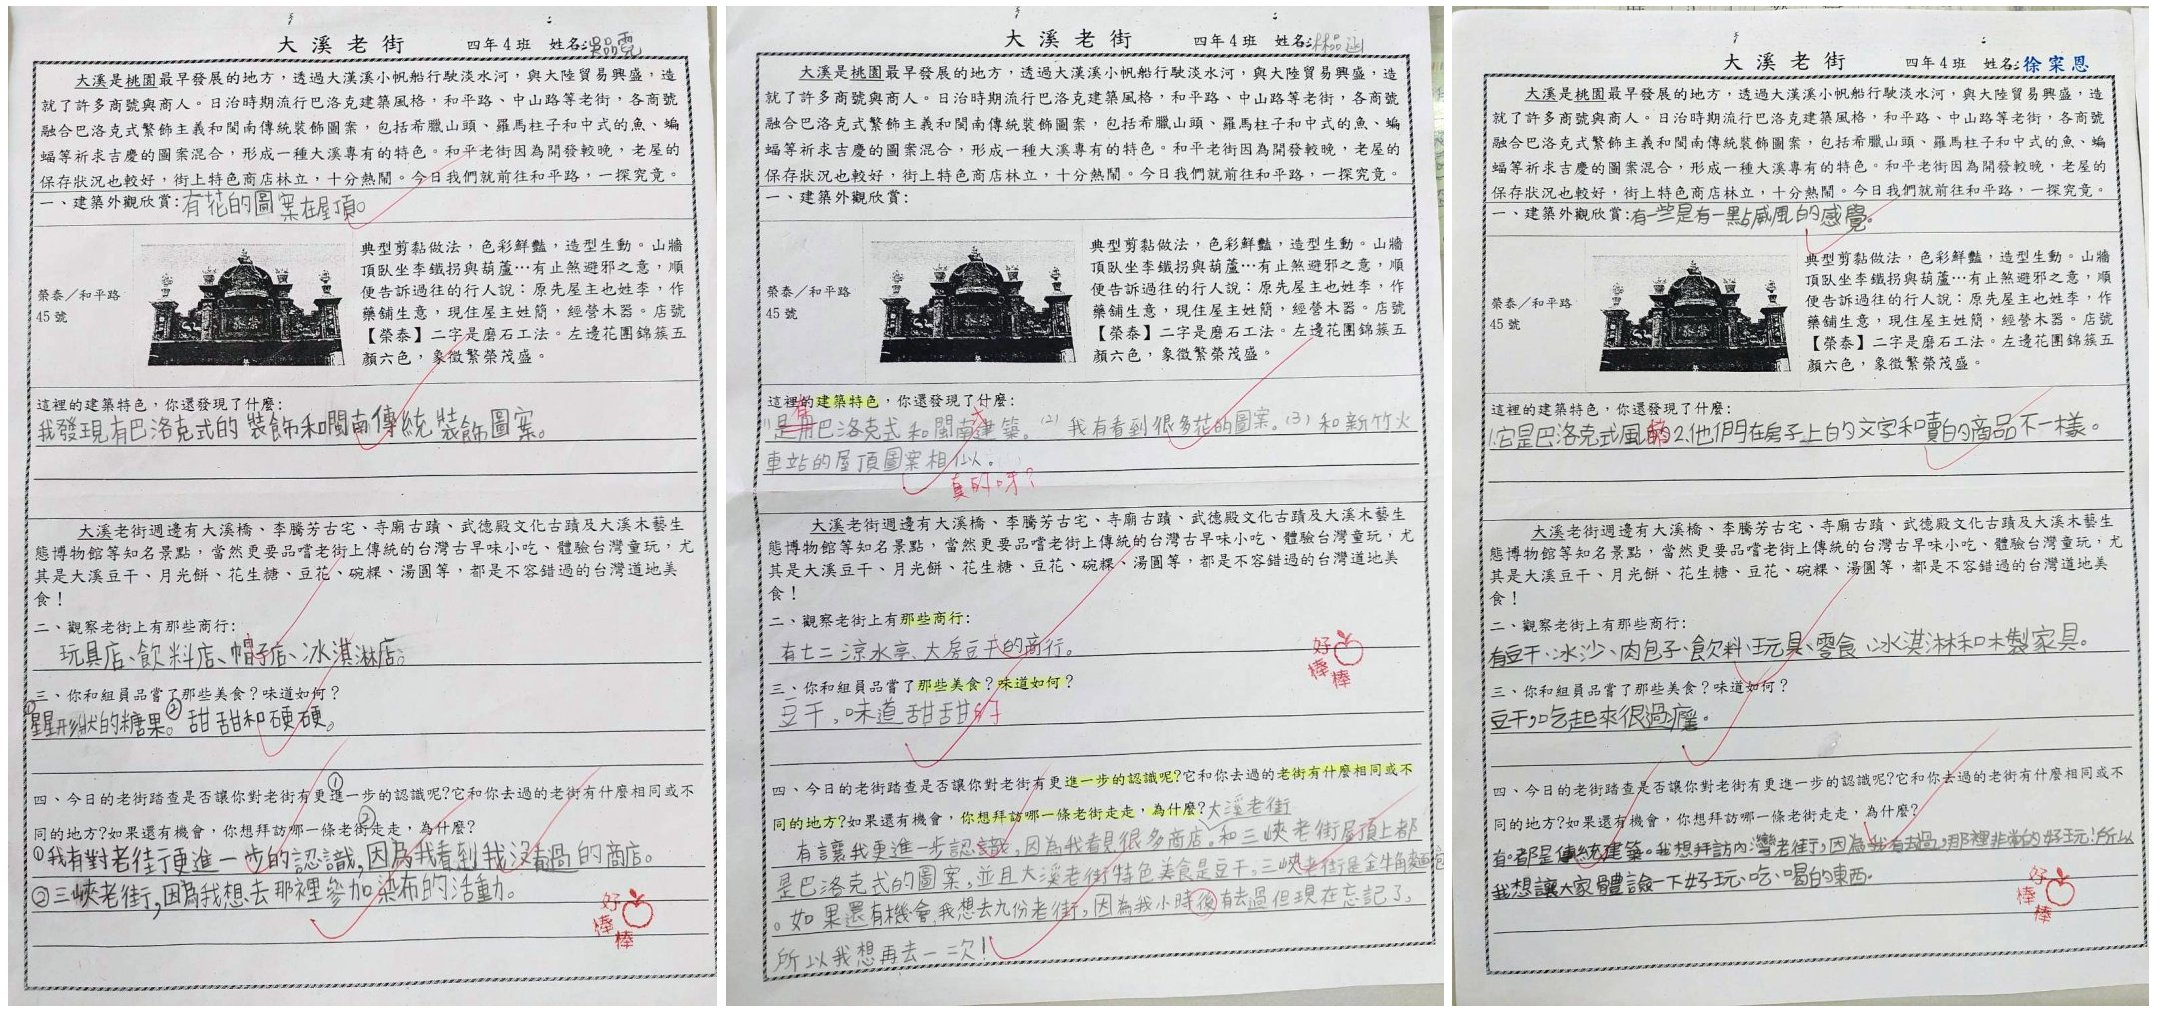 大溪老街 四年4班 姓名:
大溪是桃園最早發展的地方，透過大漢溪小帆船行駛淡水河，與大陸貿易興盛，造
就了許多商號與商人。日治時期流行巴洛克建築風格，和平路、中山路等老街，各商號
融合巴洛克式繁飾主義和閩南傳統裝飾圖案，包括希臘山頭、羅馬柱子和中式的魚、蝙
蝠等祈求吉慶的圖案混合，形成一種大溪專有的特色。和平老街因為開發較晚，老屋的
保存狀況也較好，街上特色商店林立，十分熱鬧。今日我們就前往和平路，一探究竟。
一、建築外觀欣賞:有花的圖案在屋頂。
榮泰／和平路
45號
典型剪黏做法，色彩鮮豔，造型生動。山牆
頂臥坐李鐵拐與葫蘆…有止煞避邪之意，順
便告訴過往的行人說：原先屋主也姓李，作
藥鋪生意，現住屋主姓簡，經營木器。店號
【榮泰】二字是磨石工法。左邊花團錦簇五
顏六色，象徵繁榮茂盛。
這裡的建築特色，你還發現了什麼:
我發現有巴洛克式的裝飾和閩南傳統裝飾圖案。
大溪老街週邊有大溪橋、李騰芳古宅、寺廟古蹟、武德殿文化古蹟及大溪木藝生
態博物館等知名景點，當然更要品嚐老街上傳統的台灣古早味小吃、體驗台灣童玩，尤
其是大溪豆干、月光餅、花生糖、豆花、碗粿、湯圓等，都是不容錯過的台灣道地美
食！
二、觀察老街上有那些商行:
玩具店、飲料店、帽子店、冰淇淋店。
三、你和組員品嘗了那些美食？味道如何？
①星星形狀的糖果。②甜甜和硬硬。
四、今日的老街踏查是否讓你對老街有更進一步的認識呢?它和你去過的老街有什麼相同或不
同的地方?如果還有機會，你想拜訪哪一條老街走走，為什麼?
①我有對老街更進一步的認識，因為我看到我沒看過的商店。
②三峽老街，因為我想去那裡參加染布的活動。
好棒棒
大溪老街 四年4班 姓名:
大溪是桃園最早發展的地方，透過大漢溪小帆船行駛淡水河，與大陸貿易興盛，造
就了許多商號與商人。日治時期流行巴洛克建築風格，和平路、中山路等老街，各商號
融合巴洛克式繁飾主義和閩南傳統裝飾圖案，包括希臘山頭、羅馬柱子和中式的魚、蝙
蝠等祈求吉慶的圖案混合，形成一種大溪專有的特色。和平老街因為開發較晚，老屋的
保存狀況也較好，街上特色商店林立，十分熱鬧。今日我們就前往和平路，一探究竟。
一、建築外觀欣賞:
榮泰／和平路
45號
典型剪黏做法，色彩鮮豔，造型生動。山牆
頂臥坐李鐵拐與葫蘆…有止煞避邪之意，順
便告訴過往的行人說：原先屋主也姓李，作
藥鋪生意，現住屋主姓簡，經營木器。店號
【榮泰】二字是磨石工法。左邊花團錦簇五
顏六色，象徵繁榮茂盛。
這裡的建築特色，你還發現了什麼:
(1)是用有巴洛克式和閩南式建築。(2)我有看到很多花的圖案。(3)和新竹火
車站的屋頂圖案相似。
真的呀？
大溪老街週邊有大溪橋、李騰芳古宅、寺廟古蹟、武德殿文化古蹟及大溪木藝生
態博物館等知名景點，當然更要品嚐老街上傳統的台灣古早味小吃、體驗台灣童玩，尤
其是大溪豆干、月光餅、花生糖、豆花、碗粿、湯圓等，都是不容錯過的台灣道地美
食！
二、觀察老街上有那些商行:
有七二涼水亭、大房豆干的商行。
好棒棒
三、你和組員品嘗了那些美食？味道如何？
豆干，味道甜甜的
四、今日的老街踏查是否讓你對老街有更進一步的認識呢?它和你去過的老街有什麼相同或不
同的地方?如果還有機會，你想拜訪哪一條老街走走，為什麼?大溪老街
有讓我更進一步認識，因為我看見很多商店。和三峽老街屋頂上都
是巴洛克式的圖案，並且大溪老街特色美食是豆干，三峽老街是金牛角麵包
。如果還有機會，我想去九份老街，因為我小時後有去過但現在忘記了，
所以我想再去一次！
大溪老街 四年4班 姓名:徐寀恩
大溪是桃園最早發展的地方，透過大漢溪小帆船行駛淡水河，與大陸貿易興盛，造
就了許多商號與商人。日治時期流行巴洛克建築風格，和平路、中山路等老街，各商號
融合巴洛克式繁飾主義和閩南傳統裝飾圖案，包括希臘山頭、羅馬柱子和中式的魚、蝙
蝠等祈求吉慶的圖案混合，形成一種大溪專有的特色。和平老街因為開發較晚，老屋的
保存狀況也較好，街上特色商店林立，十分熱鬧。今日我們就前往和平路，一探究竟。
一、建築外觀欣賞:有一些是有一點威風的感覺。
榮泰／和平路
45號
典型剪黏做法，色彩鮮豔，造型生動。山牆
頂臥坐李鐵拐與葫蘆…有止煞避邪之意，順
便告訴過往的行人說：原先屋主也姓李，作
藥鋪生意，現住屋主姓簡，經營木器。店號
【榮泰】二字是磨石工法。左邊花團錦簇五
顏六色，象徵繁榮茂盛。
這裡的建築特色，你還發現了什麼:
1.它是巴洛克式風格2.他們在房子上的文字和賣的商品不一樣。
大溪老街週邊有大溪橋、李騰芳古宅、寺廟古蹟、武德殿文化古蹟及大溪木藝生
態博物館等知名景點，當然更要品嚐老街上傳統的台灣古早味小吃、體驗台灣童玩，尤
其是大溪豆干、月光餅、花生糖、豆花、碗粿、湯圓等，都是不容錯過的台灣道地美
食！
二、觀察老街上有那些商行:
有豆干、冰沙、肉包子、飲料、玩具、零食、冰淇淋和木製家具。
三、你和組員品嘗了那些美食？味道如何？
豆干，吃起來很過癮。
四、今日的老街踏查是否讓你對老街有更進一步的認識呢?它和你去過的老街有什麼相同或不
同的地方?如果還有機會，你想拜訪哪一條老街走走，為什麼?
有。都是傳統建築。我想拜訪內灣老街，因為我有去過，那裡非常的好玩！所以
我想讓大家體驗一下好玩、吃、喝的東西。
好棒棒